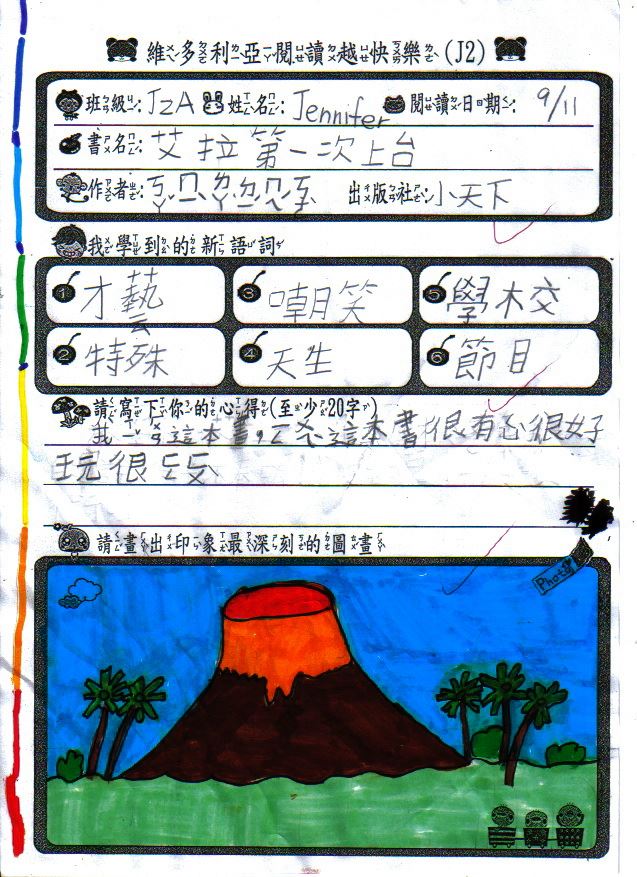 維多利亞閱讀越快樂(J2)
班級: J2A 姓名: Jennifer 閱讀日期: 9/11
書名: 艾拉第一次上台
作者: 出版社: 小天下
我學到的新語詞
1 才藝 3 嘲笑 5 學校
2 特殊 4 天生 6 節目
請寫下你的心得(至少20字)
我 這本書, 這本書很有 很好
玩很
請畫出印象最深刻的圖畫
Photo